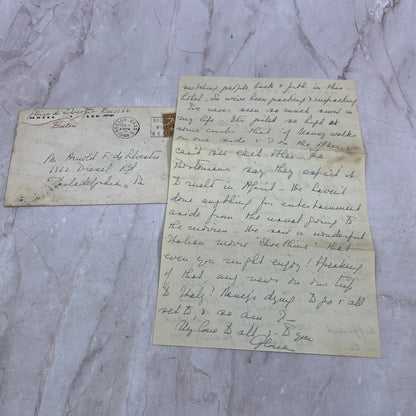 Hotel
Boston
Mr. Arnold F. de Silvestro
1862 Drexel Rd
Philadelphia, Pa
switching people back & forth in this
hotel - So we've been packing & unpacking
I've never seen so much snow in
my life. It's piled so high at
some curbs that if Nancy walks
on one side & I on the other, we
can't see each other. The
Bostonians say they expect it
to melt in April. We haven't
done anything for entertainment
aside from the usual going to
the movies. We saw a wonderful
Italian movie "Shoe Shine" that
even you might enjoy. Speaking
of that, any news on our trip
to Italy? Nancy's dying to go & all
set to, & so am I -
My love to all & to you
Gloria